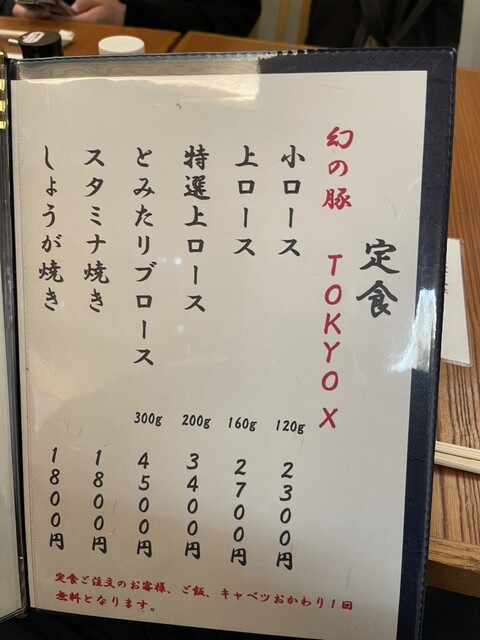 定食
幻の豚 TOKYO X
小ロース 120g 2300円
上ロース 160g 2700円
特選上ロース 200g 3400円
とみたリブロース 300g 4500円
スタミナ焼き 1800円
しょうが焼き 1800円
定食ご注文のお客様、ご飯、キャベツおかわり1回
無料となります。